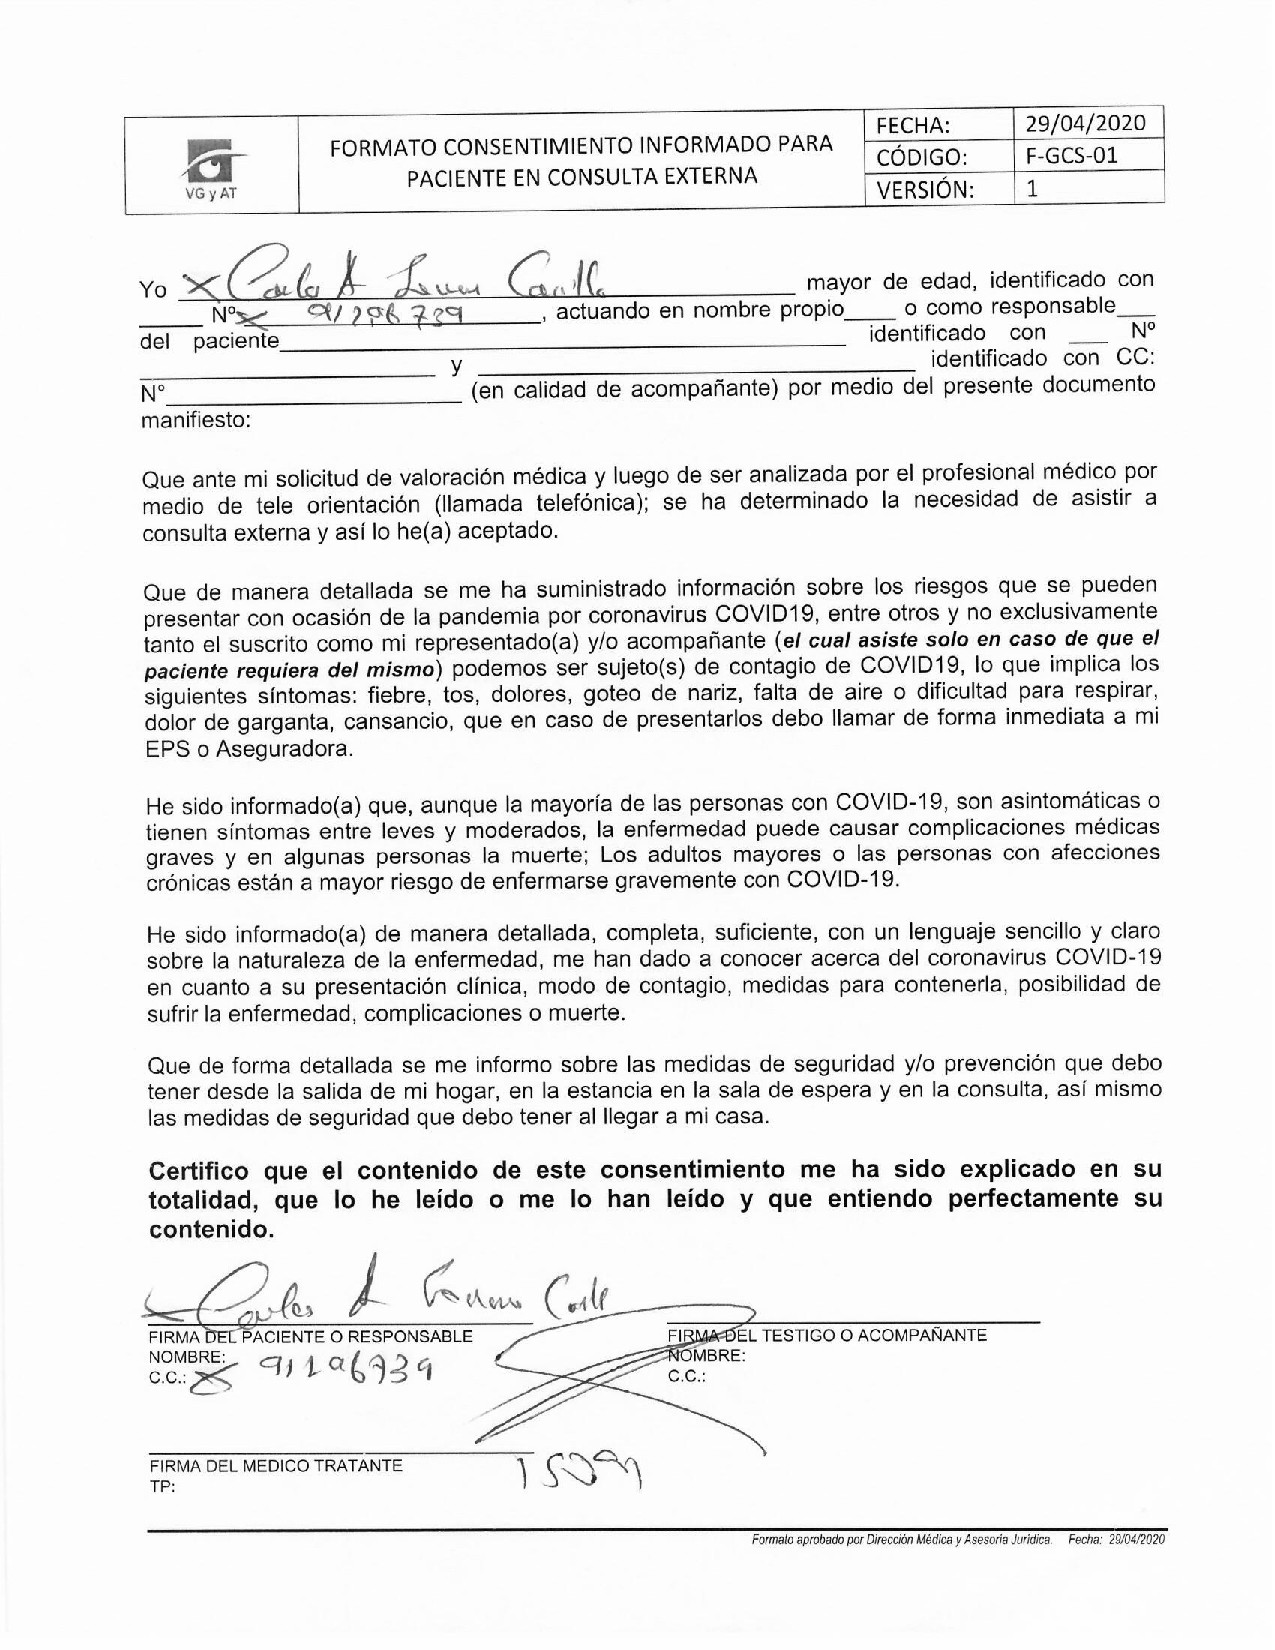 VG y AT
FORMATO CONSENTIMIENTO INFORMADO PARA
PACIENTE EN CONSULTA EXTERNA
FECHA: 29/04/2020
CÓDIGO: F-GCS-01
VERSIÓN: 1
Yo X Carlos A mayor de edad, identificado con
Nº X 91296739, actuando en nombre propio____ o como responsable__
del paciente____ identificado con ___ Nº
____ y ____ identificado con CC:
Nº____ (en calidad de acompañante) por medio del presente documento
manifiesto:
Que ante mi solicitud de valoración médica y luego de ser analizada por el profesional médico por
medio de tele orientación (llamada telefónica); se ha determinado la necesidad de asistir a
consulta externa y así lo he(a) aceptado.
Que de manera detallada se me ha suministrado información sobre los riesgos que se pueden
presentar con ocasión de la pandemia por coronavirus COVID19, entre otros y no exclusivamente
tanto el suscrito como mi representado(a) y/o acompañante (el cual asiste solo en caso de que el
paciente requiera del mismo) podemos ser sujeto(s) de contagio de COVID19, lo que implica los
siguientes síntomas: fiebre, tos, dolores, goteo de nariz, falta de aire o dificultad para respirar,
dolor de garganta, cansancio, que en caso de presentarlos debo llamar de forma inmediata a mi
EPS o Aseguradora.
He sido informado(a) que, aunque la mayoría de las personas con COVID-19, son asintomáticas o
tienen síntomas entre leves y moderados, la enfermedad puede causar complicaciones médicas
graves y en algunas personas la muerte; Los adultos mayores o las personas con afecciones
crónicas están a mayor riesgo de enfermarse gravemente con COVID-19.
He sido informado(a) de manera detallada, completa, suficiente, con un lenguaje sencillo y claro
sobre la naturaleza de la enfermedad, me han dado a conocer acerca del coronavirus COVID-19
en cuanto a su presentación clínica, modo de contagio, medidas para contenerla, posibilidad de
sufrir la enfermedad, complicaciones o muerte.
Que de forma detallada se me informo sobre las medidas de seguridad y/o prevención que debo
tener desde la salida de mi hogar, en la estancia en la sala de espera y en la consulta, así mismo
las medidas de seguridad que debo tener al llegar a mi casa.
Certifico que el contenido de este consentimiento me ha sido explicado en su
totalidad, que lo he leído o me lo han leído y que entiendo perfectamente su
contenido.
Carlos A
FIRMA DEL PACIENTE O RESPONSABLE
NOMBRE:
C.C.: X 91296739
FIRMA DEL TESTIGO O ACOMPAÑANTE
NOMBRE:
C.C.:
FIRMA DEL MEDICO TRATANTE
TP:
Formato aprobado por Dirección Médica y Asesoría Jurídica. Fecha: 29/04/2020